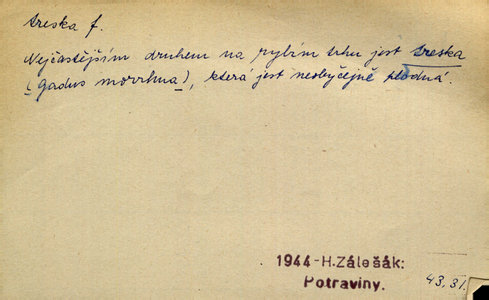 treska f.
Nejčastějším druhem na rybím trhu jest treska
(Gadus morrhua), která jest neobyčejně plodná.
1944-H.Zálešák:
Potraviny.
43.31.